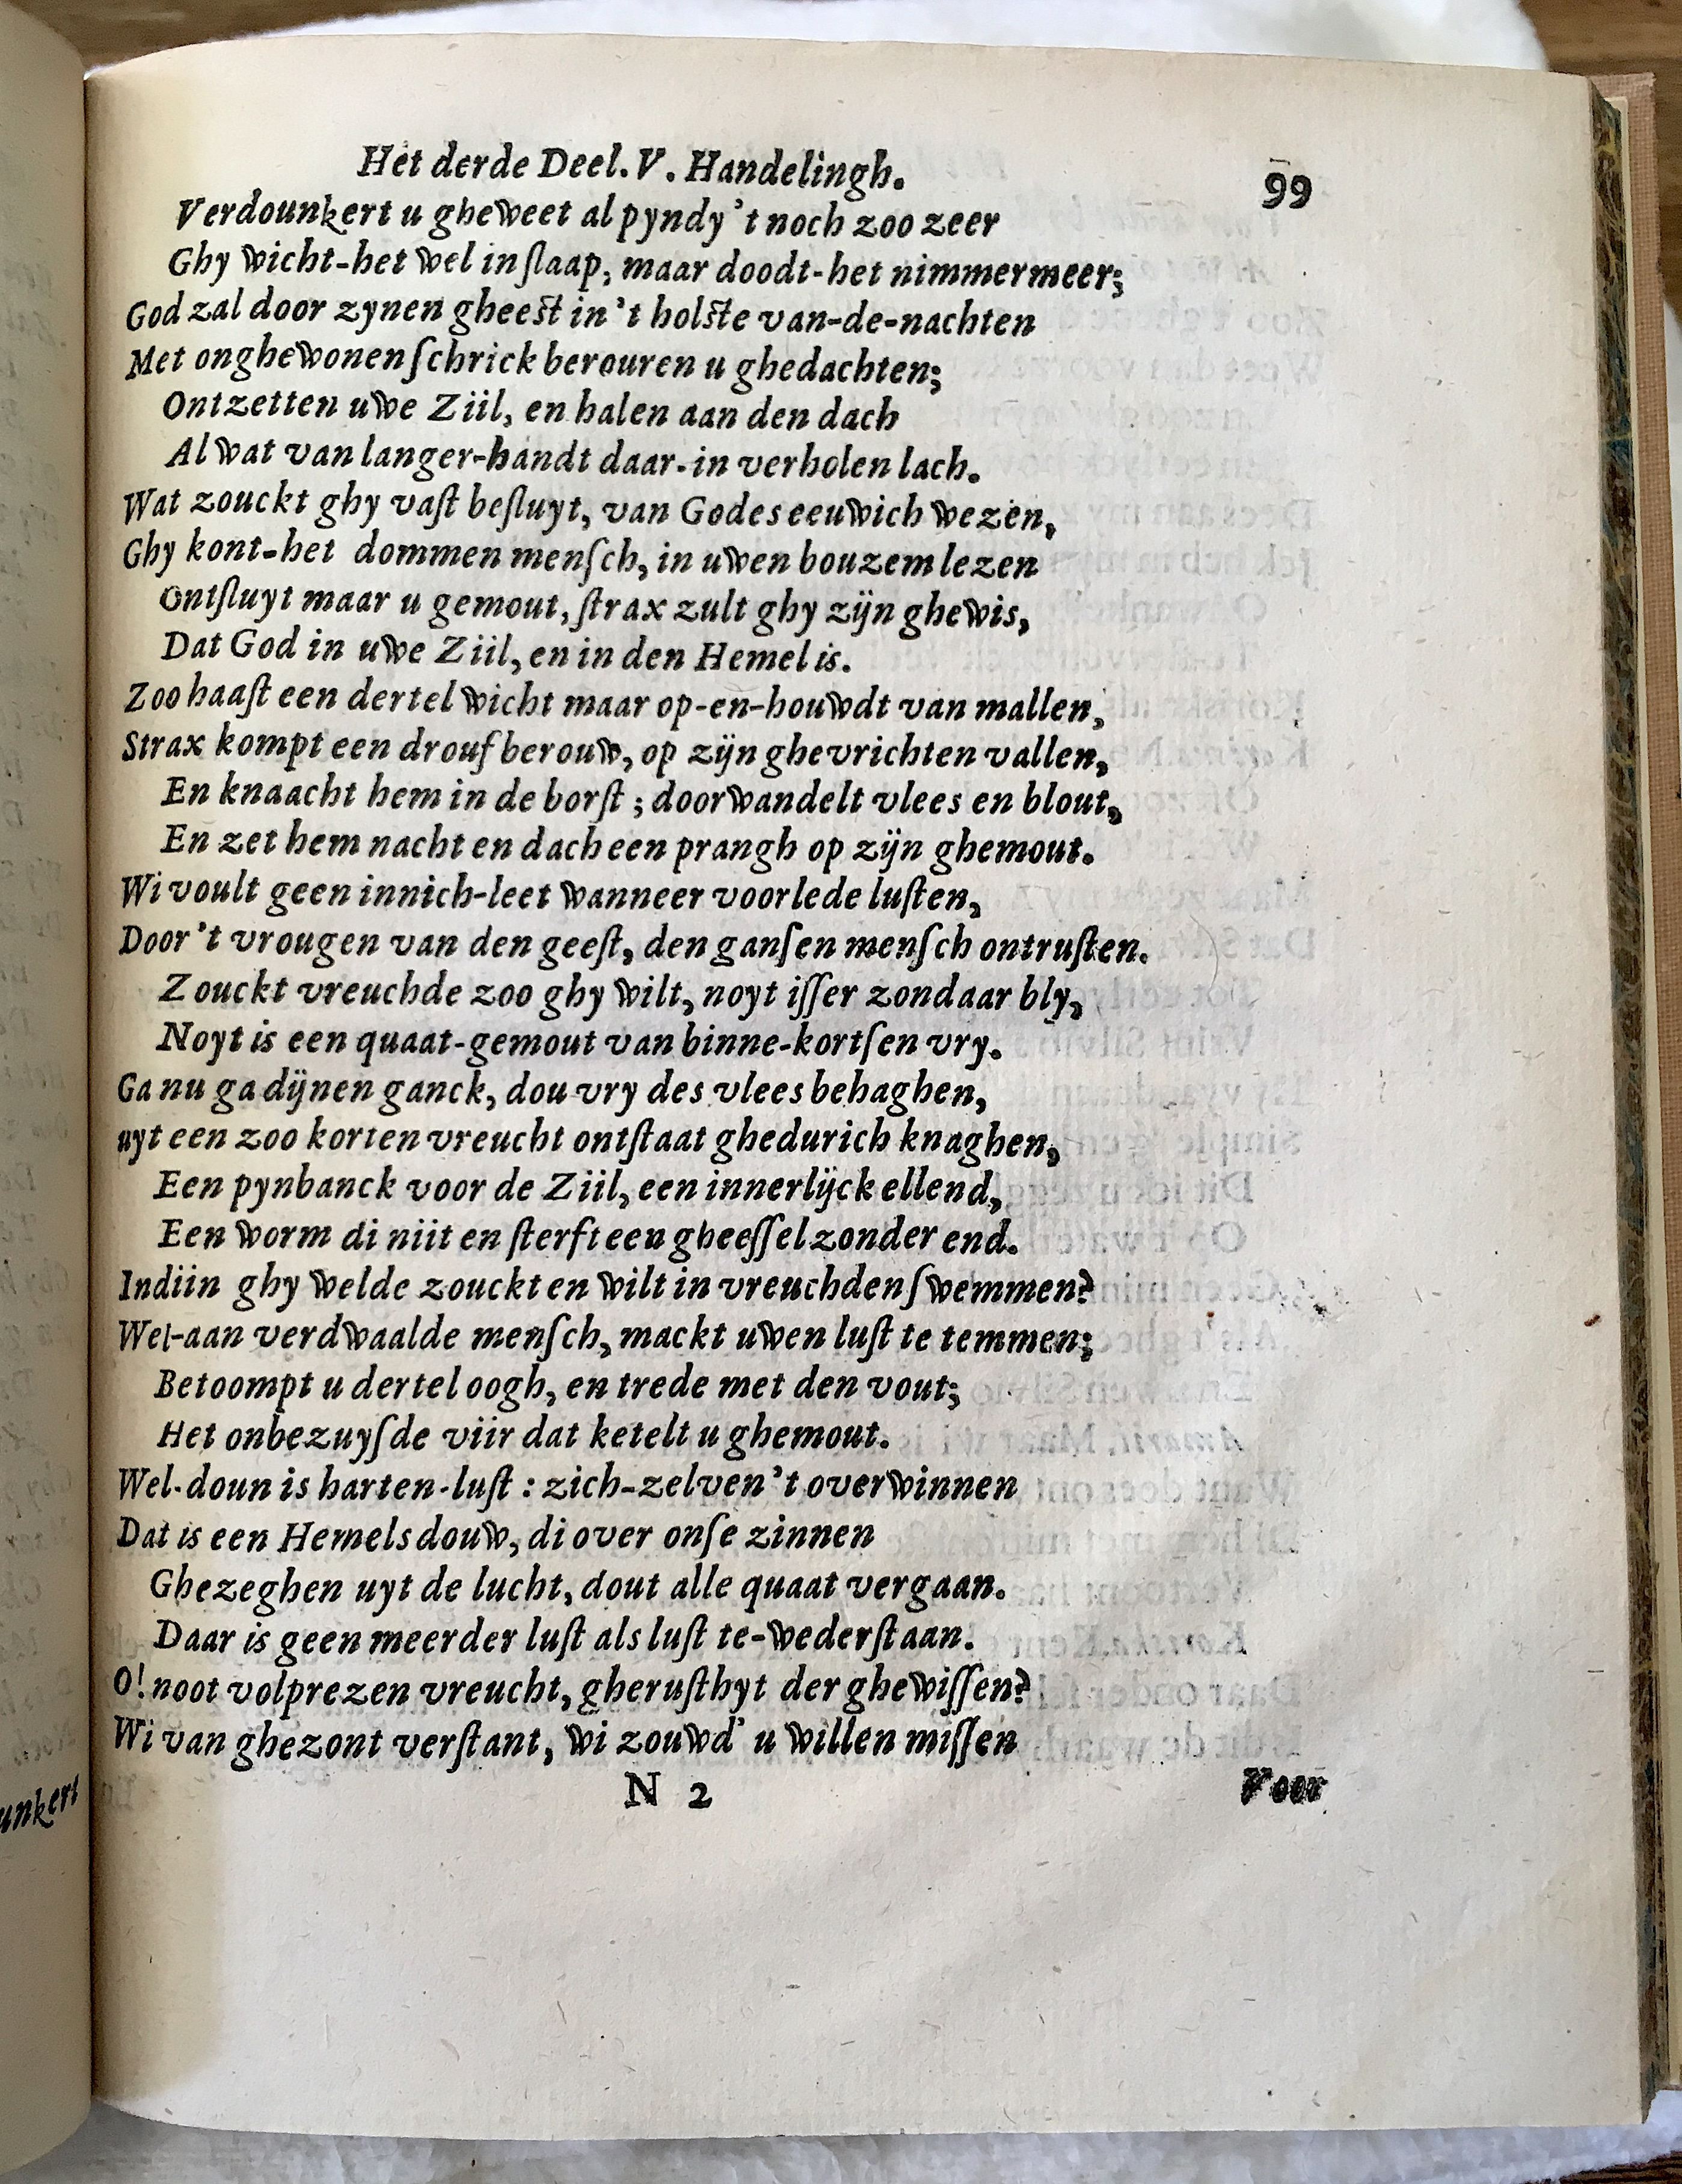 Het derde Deel. V. Handelingh. 99
Verdounkert u gheweet al pyndy 't noch zoo zeer
Ghy wicht-het wel in ſlaap, maar doodt-het nimmermeer;
God zal door zynen gheest in 't holste van-de-nachten
Met onghewonen ſchrick berouren u ghedachten;
Ontzetten uwe Ziil, en halen aan den dach
Al wat van langer-handt daar-in verholen lach.
Wat zouckt ghy vaſt beſluyt, van Godes eeuwich wezen,
Ghy kont-het dommen menſch, in uwen bouzem lezen
Ontſluyt maar u gemout, ſtrax zult ghy zijn ghewis,
Dat God in uwe Ziil, en in den Hemel is.
Zoo haaſt een dertel wicht maar op-en-houwdt van mallen,
Strax kompt een drouf berouw, op zijn ghevrichten vallen,
En knaacht hem in de borſt ; doorwandelt vlees en blout,
En zet hem nacht en dach een prangh op zijn ghemout.
Wi voult geen innich-leet wanneer voorlede luſten,
Door 't vrougen van den geeſt, den ganſen menſch ontruſten.
Zouckt vreuchde zoo ghy wilt, noyt iſſer zondaar bly,
Noyt is een quaat-gemout van binne-kortſen vry.
Ga nu ga dijnen ganck, dou vry des vlees behaghen,
uyt een zoo korten vreucht ontſtaat ghedurich knaghen,
Een pynbanck voor de Ziil, een innerlijck ellend,
Een worm di niit en ſterft een gheeſſel zonder end.
Indiin ghy welde zouckt en wilt in vreuchden ſwemmen?
Wel-aan verdwaalde menſch, mackt uwen luſt te temmen;
Betoompt u dertel oogh, en trede met den vout;
Het onbezuyſde viir dat ketelt u ghemout.
Wel-doun is harten-luſt : zich-zelven 't overwinnen
Dat is een Hemels douw, di over onſe zinnen
Ghezeghen uyt de lucht, dout alle quaat vergaan.
Daar is geen meerder luſt als luſt te-wederſtaan.
O! noot volprezen vreucht, gheruſthyt der ghewiſſen?
Wi van ghezont verſtant, wi zouwd' u willen miſſen
N 2 Voor
unkert